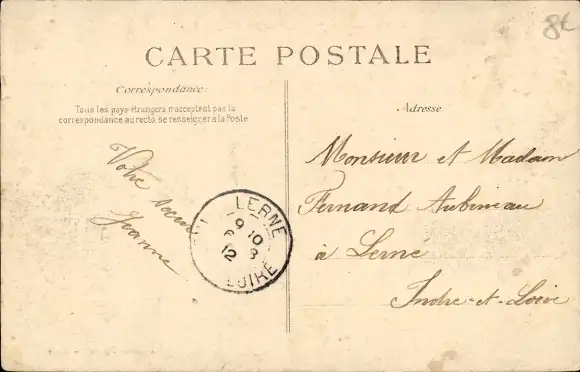 8€
CARTE POSTALE
Correspondance:
Tous les pays étrangers n'acceptent pas la
correspondance au recto, se renseigner à la Poste
Adresse
Votre sœur
Jeanne
LERNE
9 10
12
LOIRE
Monsieur et Madam
Fernand Aubineau
à Lerné
Indre-et-Loire